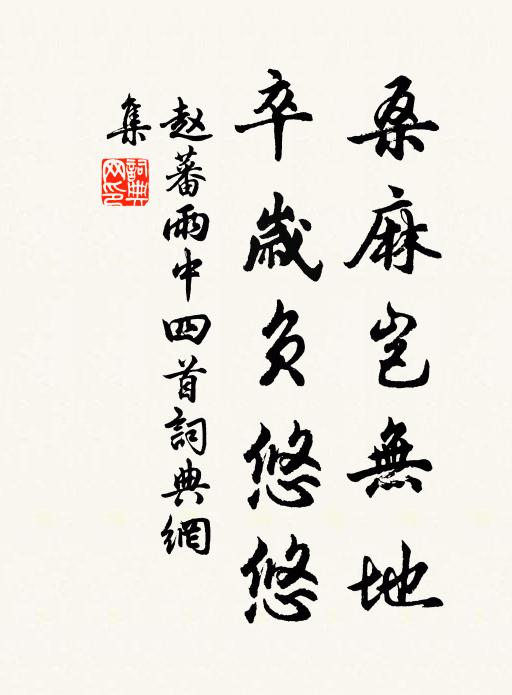 桑麻岂無地
卒歲負悠悠
赵蕃雨中四首詞典網
集
詞典網印